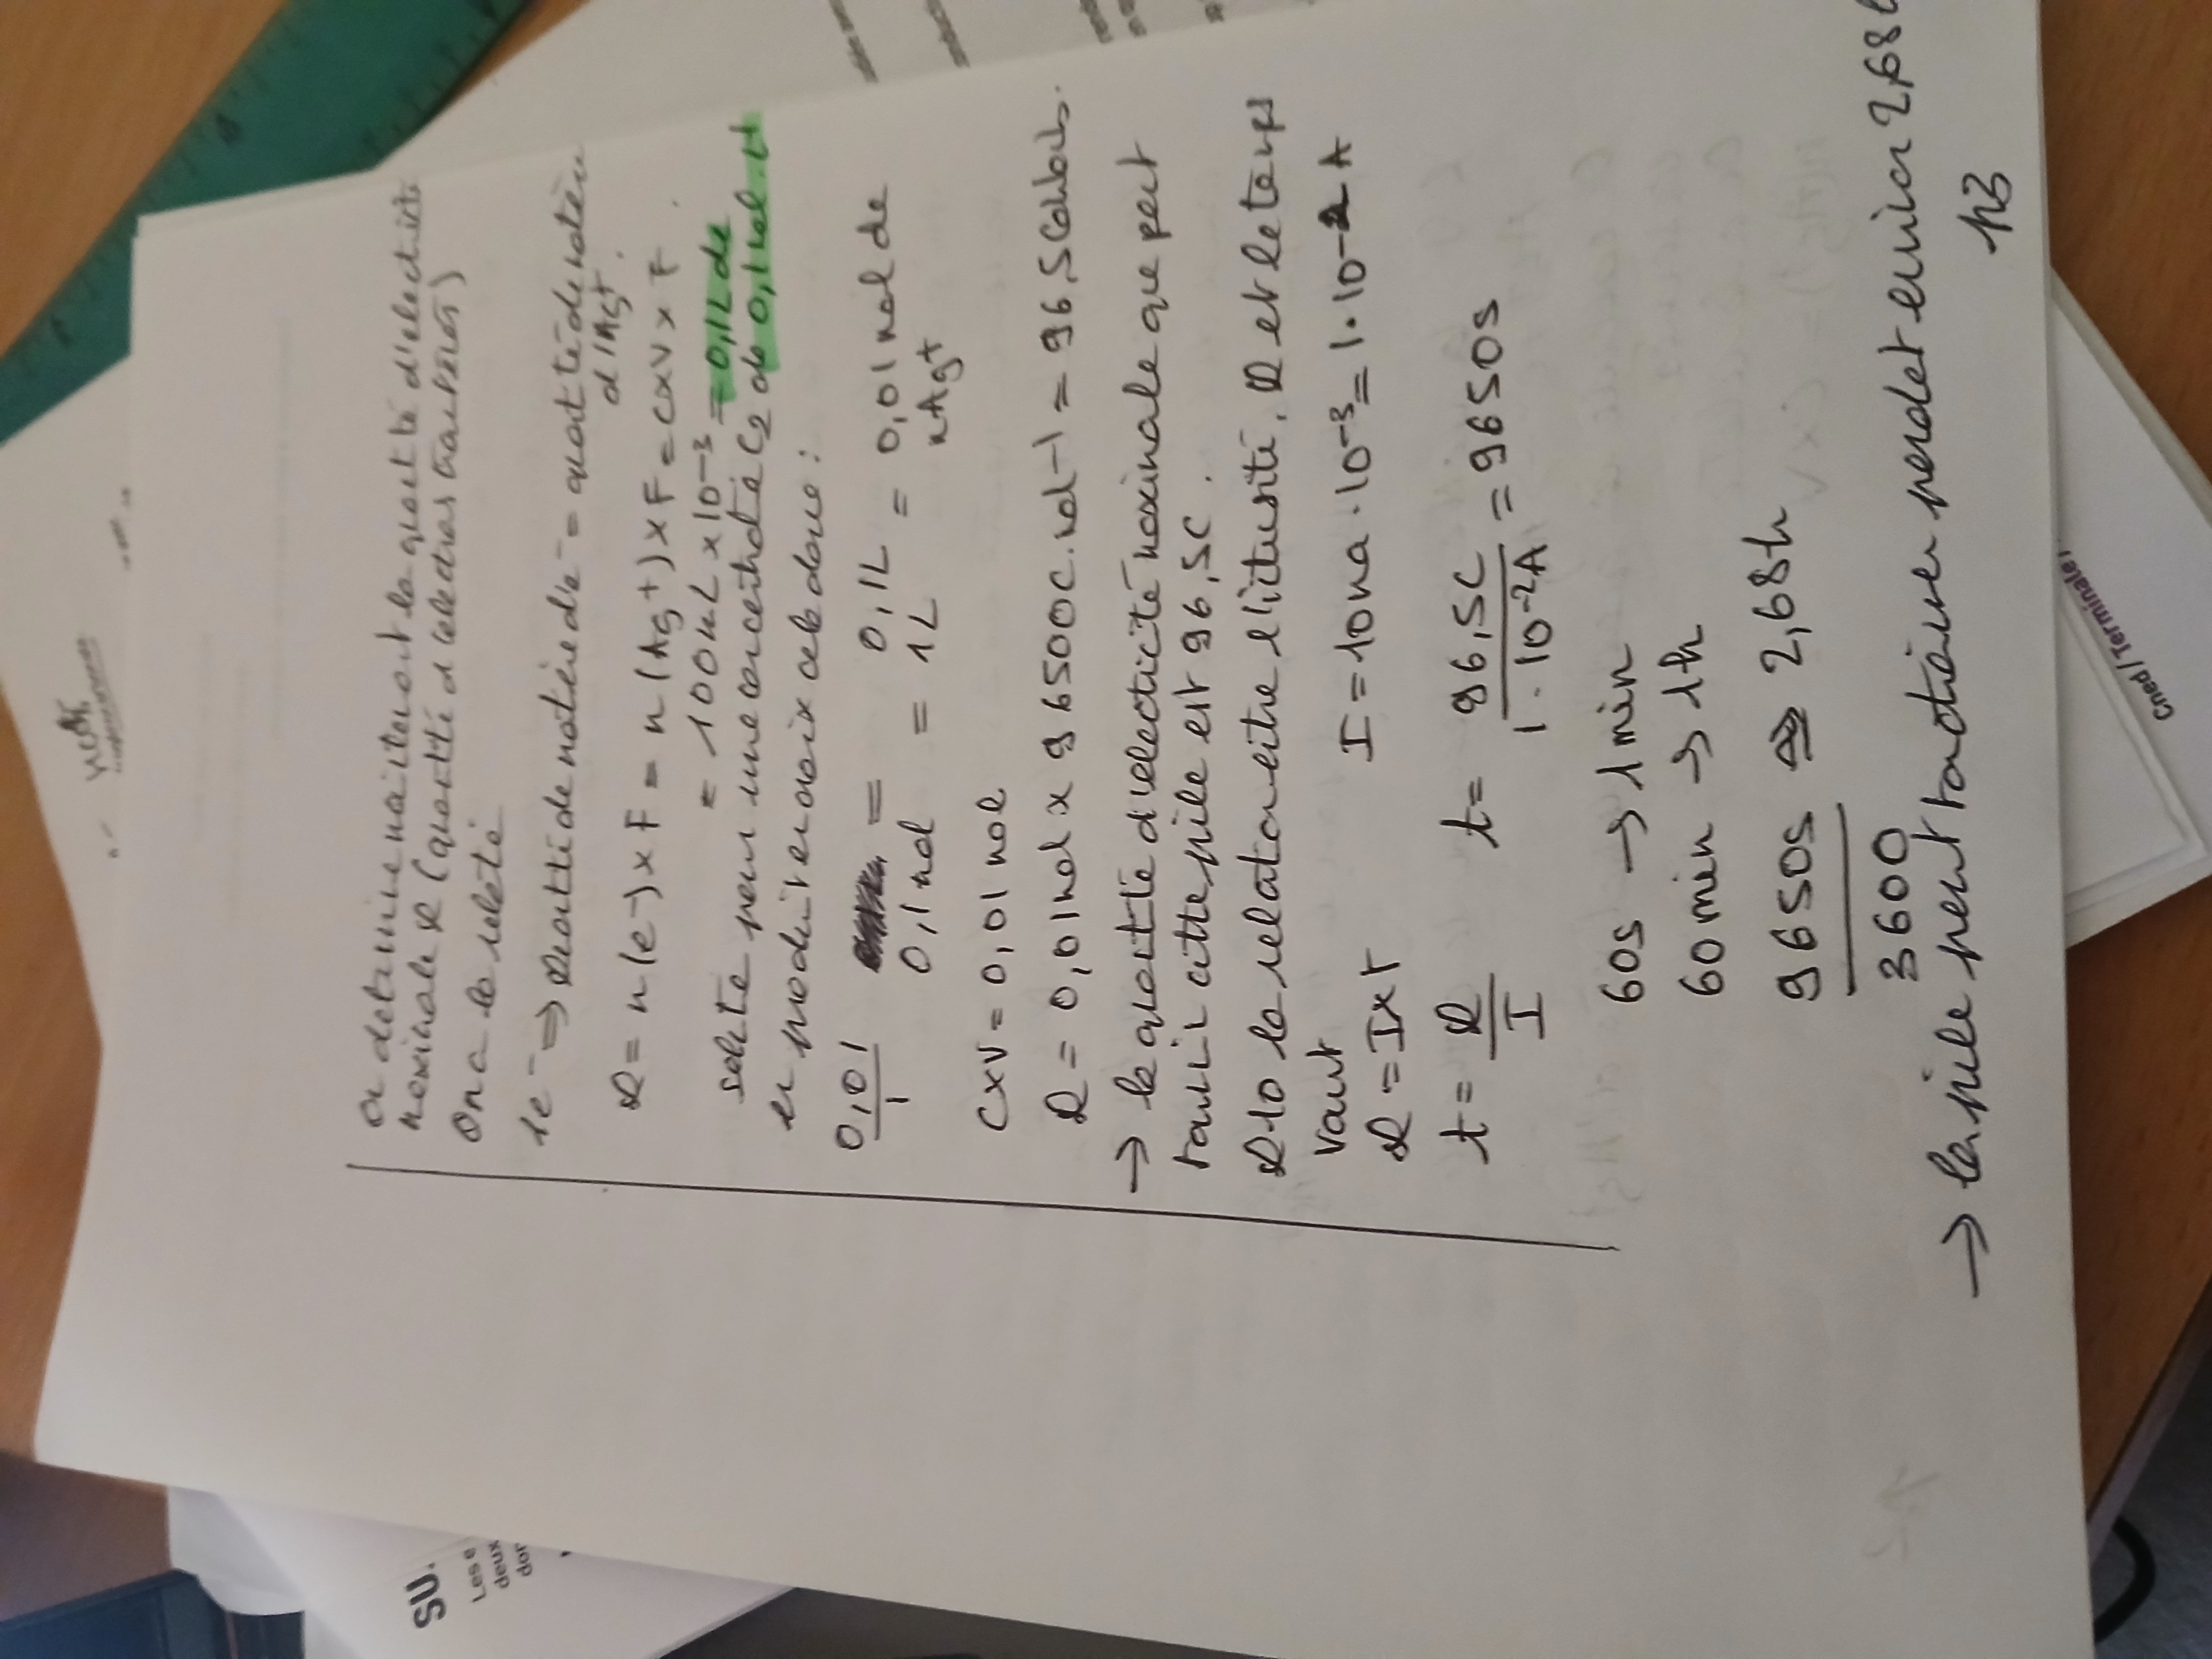 On détermine maintenant la quantité d'électricité
maximale Q (quantité d'électrons transférés)
On a la relation
1e- => Quantité de matière d'e- = quantité de matière
d'Ag+.
Q = n(e-) x F = n(Ag+) x F = CxV x F.
= 100mL x 10-3 = 0,1L de
solution pour une concentration C2 de 0,1 mol.L-1
en produit en croix cela donne :
0,1 0,1
1
= 0,1L = 0,01 mol de
0,1 mol = 1L nAg+
CxV = 0,01 mol
Q = 0,01mol x 96500C.mol-1 = 96,5 Coulombs.
→ la quantité d'électricité maximale que peut
fournir cette pile est 96,5C.
Q10 la relation entre l'intensité, Q et le temps
vaut I = 10mA.10-3 = 1.10-2 A
Q = Ixt
t = Q/I t = 96,5C / 1.10-2A = 9650s
60s → 1min
60min → 1h
9650s / 3600 ≈ 2,68h
→ la pile peut fonctionner pendant environ 2,68h
13
Cned / Terminale
SU.
Les e
deux
dor